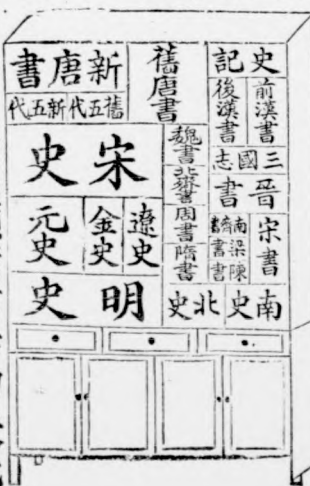 史記
前漢書
後漢書
三國志
晉書
宋書
南齊書
梁書
陳書
南史
北史
舊唐書
魏書
北齊書
周書
隋書
新唐書
舊五代
新五代
宋史
遼史
金史
元史
明史